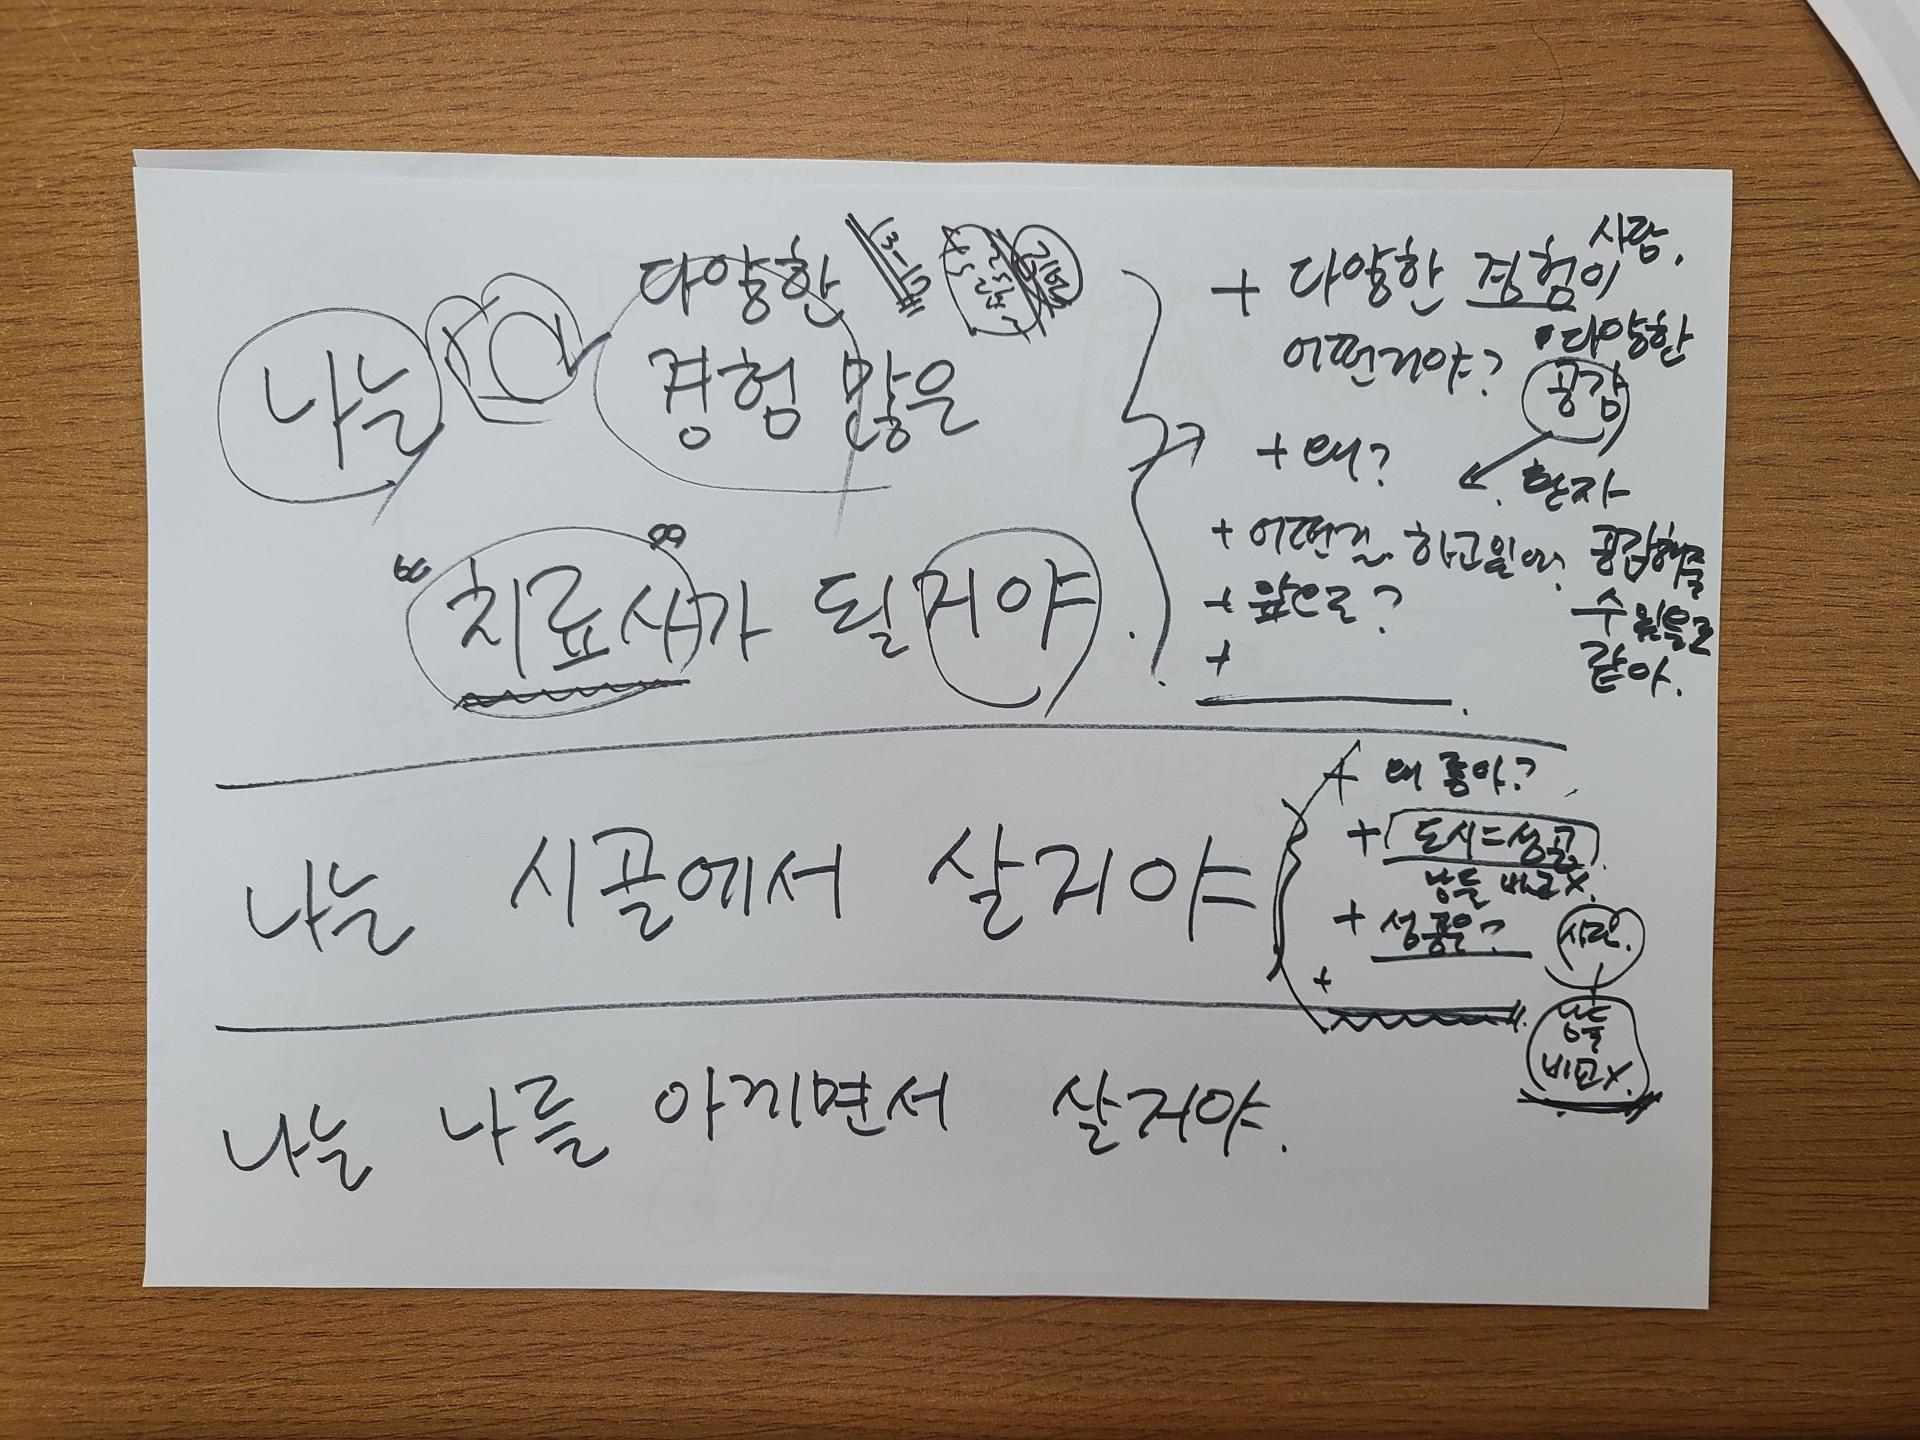 나는
다양한
경험 많은
"치료사"가 될거야.
+ 다양한 경험이
어떤거야?
사람,
•다양한
공감
+ 왜?
환자
+ 어떤걸 하고있어.
공감해줄
수 있을것
같아.
+ 앞으로?
+
나는 시골에서 살거야
+ 왜 좋아?
+ 도시=성공
남들 비교X.
+ 성공은?
+
남들
비교X.
나는 나를 아끼면서 살거야.